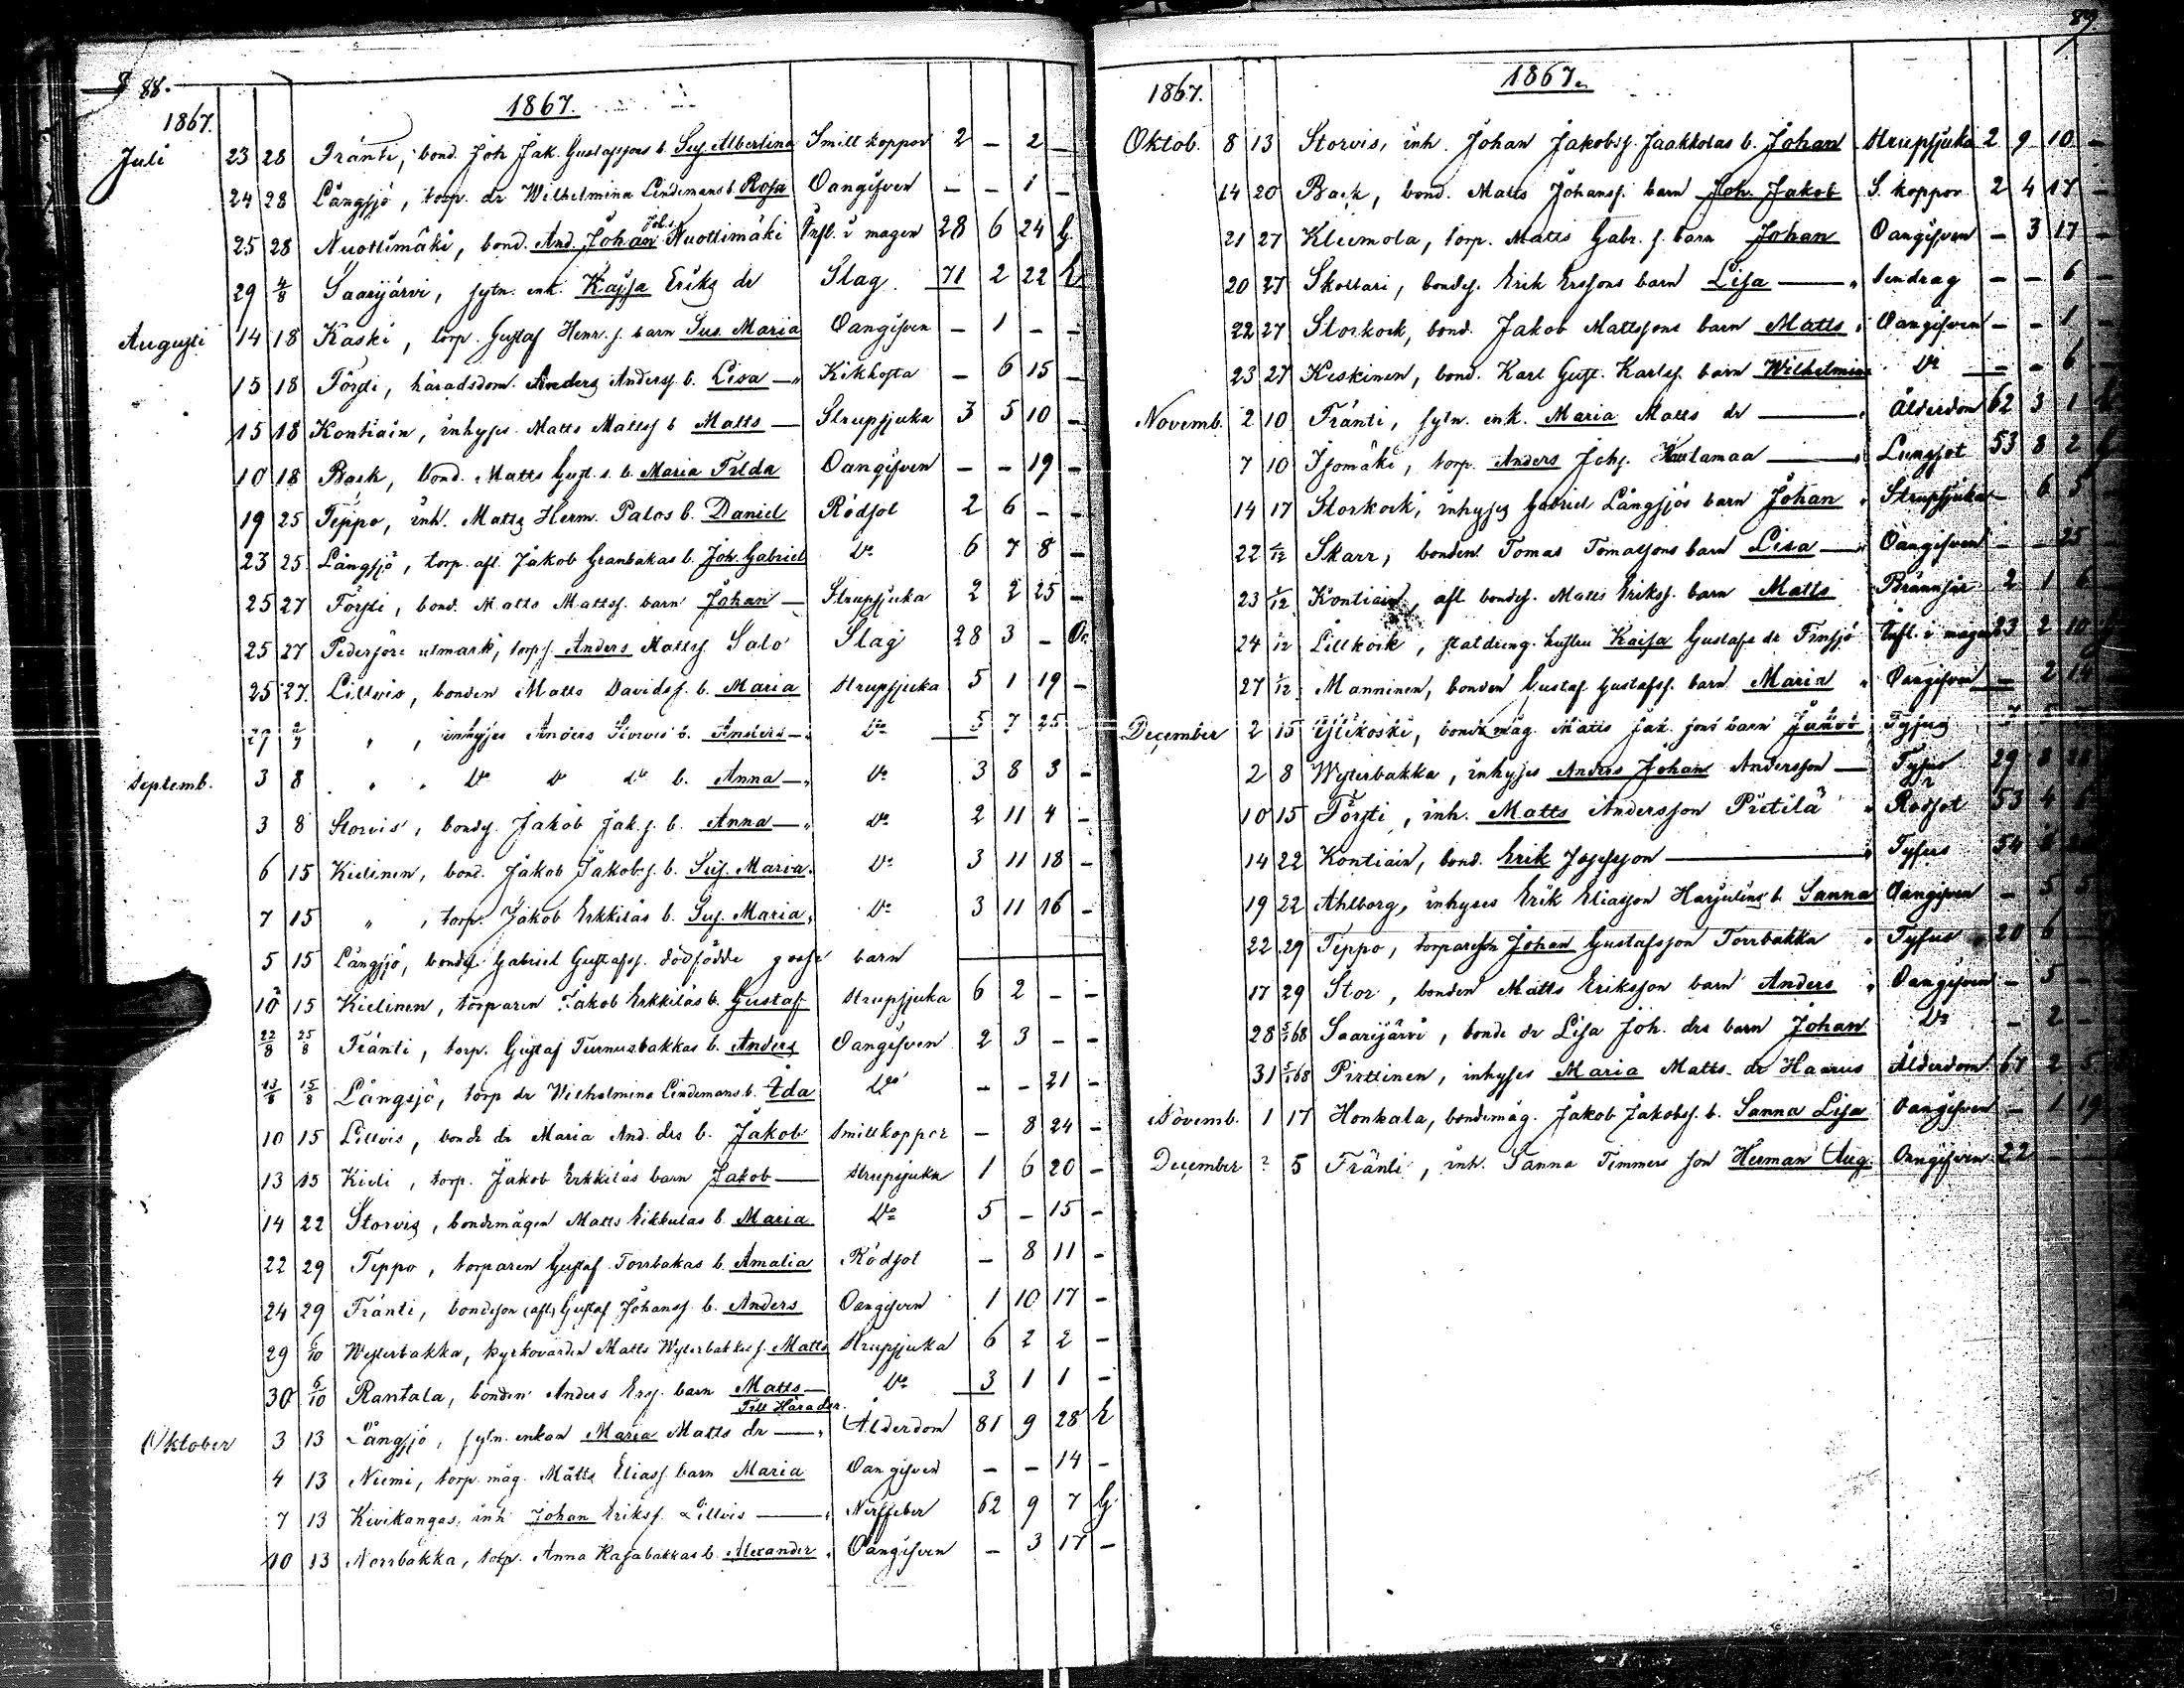 88.
1867.
1867.
Juli 23 28 Fränti, bond. Joh. Jak. Gustafssons b. Sus. Albertina Smittkoppor 2 – 2 –
24 28 Långsjö, torp. dr Wilhelmina Lindemans b. Rosa Oangifven – – 1 –
25 28 Nuottimäki, bond. And. Johan Joh.s. Nuottimäki Infl. i magen 28 6 24 G.
29 4/8 Saarijärvi, sytn. enk. Kajsa Eriks dr Slag 71 2 22 E
Augusti 14 18 Kaski, torp. Gustaf Henr. s. barn Sus. Maria Oangifven – 1 – –
15 18 Försti, häradsdom. Anders Anders. b. Lisa – " Kikhosta – 6 15 –
15 18 Kontiain, inhyses Matts Matts. b. Matts – Strupsjuka 3 5 10 –
10 18 Back, bond. Matts Gust. s. b. Maria Tilda Oangifven – – 19 –
19 25 Teppo, inh. Matts Herm. Palos b. Daniel Rödsot 2 6 – –
23 25 Långsjö, torp. afl. Jakob Granbakas b. Joh. Gabriel Do 6 7 8 –
25 27 Försti, bond. Matts Mattss. barn Johan – Strupsjuka 2 2 25 –
25 27 Pedersöre utmark, torp.s. Anders Mattss. Salo Slag 28 3 – Og
25 27. Lillvis, bonden Matts Davidss. b. Maria Strupsjuka 5 1 19 –
29 2/9 " , inhyses Anders Storvis b. Anders – Do 5 7 25 –
Septemb. 3 8 " " Do Do do b. Anna – " Do 3 8 3 –
3 8 Storvis, bondes. Jakob Jak. s. b. Anna – " Do 2 11 4 –
6 15 Kielinen, bond. Jakob Jakobs. b. Sus. Maria. Do 3 11 18 –
7 15 " , torp. Jakob Erkkiläs b. Sus. Maria " Do 3 11 16 –
5 15 Långsjö, bondes. Gabriel Gustafss. dödfödde gosse barn
10 15 Kielinen, torparen Jakob Erkkiläs b. Gustaf Strupsjuka 6 2 – –
22/8 25/8 Fränti, torp. Gustaf Turnusbakkas b. Anders Oangifven 2 3 – –
13/8 15/8 Långsjö, torp dr Wilhelmina Lindemans b. Ida Do – – 21 –
10 15 Lillvis, bonde dr Maria And. drs b. Jakob Smittkoppor – 8 24 –
13 15 Kieli, torp. Jakob Erkkiläs barn Jakob – Strupsjuka 1 6 20 –
14 22 Storvis, bondemågen Matts Eikkulas b. Maria Do 5 – 15 –
22 29 Teppo, torparen Gustaf Torrbakas b. Amalia Rödsot – 8 11 –
24 29 Fränti, bondeson (afl.) Gustaf Johanss. b. Anders Oangifven 1 10 17 –
29 6/10 Westerbakka, kyrkovärden Matts Westerbakkas s. Matts Strupsjuka 6 2 2 –
30 6/10 Rantala, bonden Anders Ers. barn Matts – Do 3 1 1 –
Till Härader.
Oktober 3 13 Långsjö, sytn. enkan Maria Matts dr – " Ålderdom 81 9 28 E
4 13 Niemi, torp. måg. Matts Eliass. barn Maria Oangifven – – 14 –
7 13 Kivikangas, inh. Johan Eriks. Lillvis – " Nerffeber 62 9 7 G.
10 13 Norrbakka, torp. Anna Rasabakkas b. Alexander " Oangifven – 3 17 –
89.
1867.
1867.
Oktob. 8 13 Storvis, inh. Johan Jakobs. Jaakkolas b. Johan Strupsjuka 2 9 10 –
14 20 Back, bond. Matts Johanss. barn Joh. Jakob S. koppor 2 4 17 –
21 27 Kleemola, torp. Matts Gabr. s. barn Johan Oangifven – 3 17 –
20 27 Skottari, bondes. Erik Erssons barn Lisa – " Sendrag – – 6 –
22 27 Storkock, bond. Jakob Mattssons barn Matts " Oangifven – – 1 –
23 27 Keskinen, bond. Karl Gust. Karls. barn Wilhelmina Do – – 6 –
Novemb. 2 10 Fränti, sytn. enk. Maria Matts dr – " Ålderdom 62 3 1
7 10 Isomäki, torp. Anders Johs. Kultamaa – " Lungsot 53 8 2 G
14 17 Storkock, inhyses Gabriel Långsjös barn Johan " Strupsjuka – 6 5
22 1/12 Skarr, bonden Tomas Tomassons barn Lisa – " Oangifven – – 25
23 1/12 Kontiain, afl. bondes. Matts Eriks. barn Matts Brännsår 2 1 6
24 1/12 Lillkock, statdreng. hustru Kaisa Gustafs dr Innsjö Infl. i magen 23 2 10
27 1/12 Manninen, bonden Gustaf Gustafss. barn Maria " Oangifven – 2 14
December 2 15 Ylikoski, bondemåg. Matts Jak. sons barn Jakob Tyfus
2 8 Westerbakka, inhyses Anders Johan Andersson – Tyfus 29 8
10 15 Försti, inh. Matts Andersson Pietilä " Rödsot 53 4 6
14 22 Kontiain, bond. Erik Josefsson – " Tyfus 54
19 22 Ahlborg, inhyses Erik Eliasson Harjulins b. Sanna Oangifven – 5 5
22 29 Teppo, torpareson Johan Gustafsson Torrbakka " Tyfus 20 6
17 29 Stor, bonden Matts Eriksson barn Anders " Oangifven – 5 –
28 5/1 68 Saarijärvi, bonde dr Lisa Joh. drs barn Johan Do – 2 –
31 5/1 68 Pirttinen, inhyses Maria Matts dr Haarus Ålderdom 67 2 5
Novemb. 1 17 Honkala, bondemåg. Jakob Jakobss. b. Sanna Lisa Oangifven – 1 19
December ? 5 Fränti, inh. Sanna Timmers son Herman Aug. Oangifven 22 –